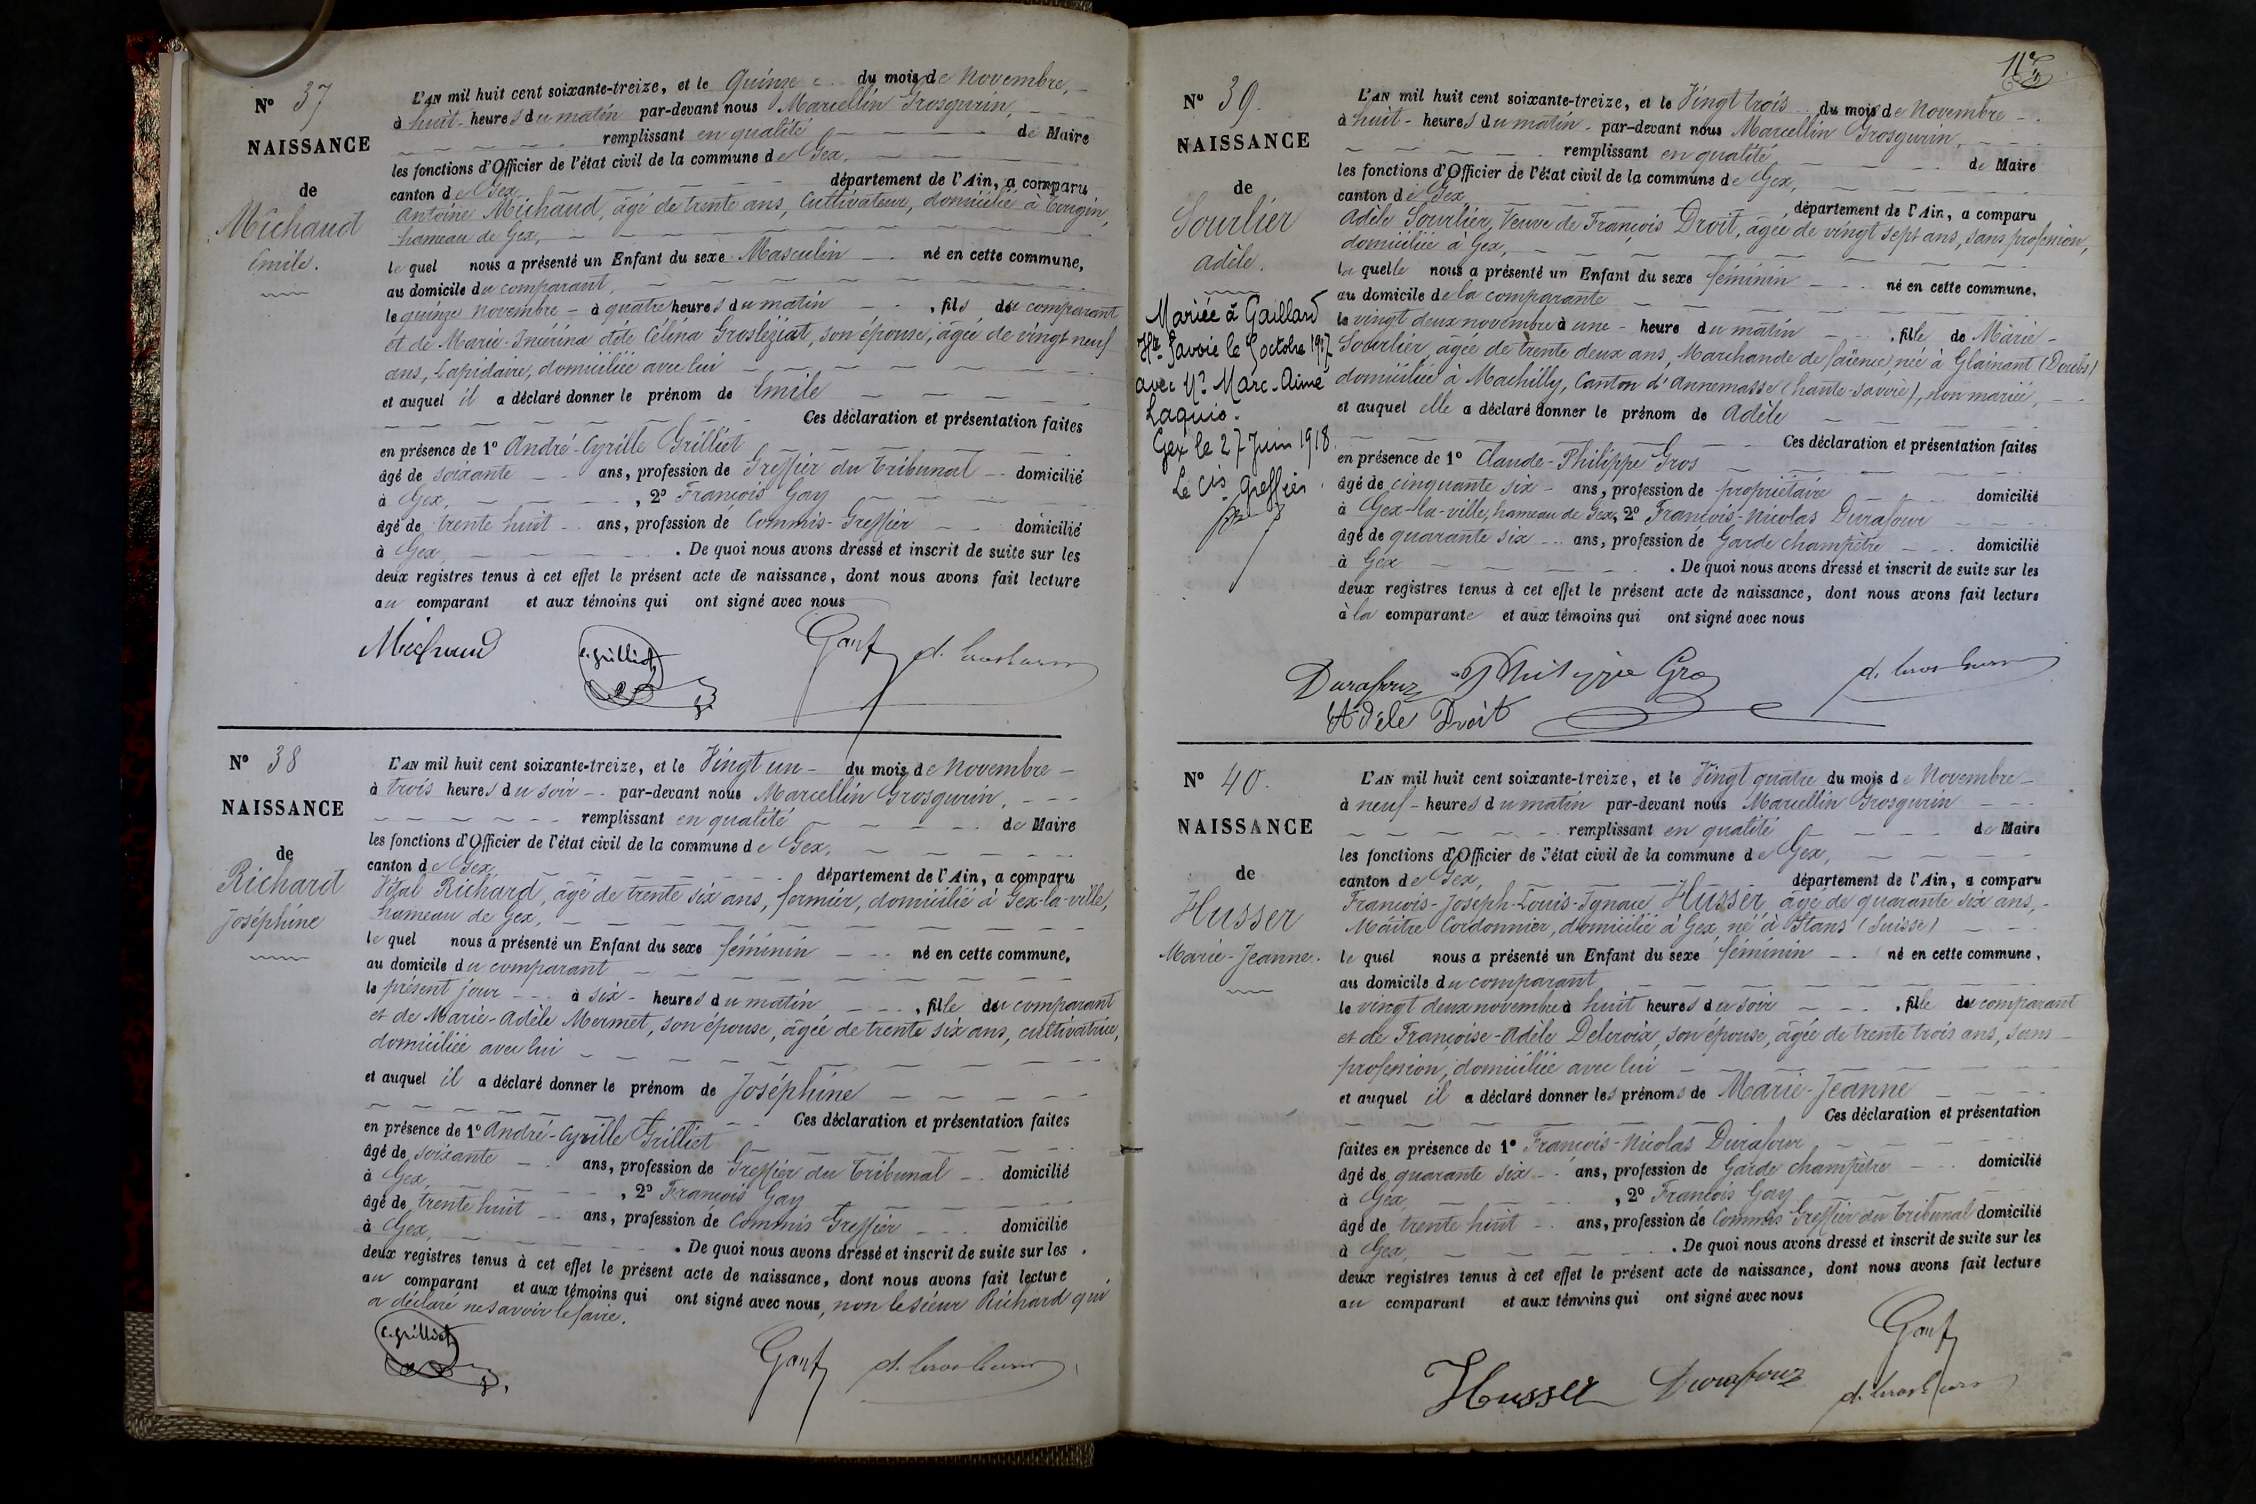 N° 37
NAISSANCE
de
Michaud
Emile.
L'AN mil huit cent soixante-treize, et le Quinze du mois de Novembre,
à huit heures du matin par-devant nous Marcellin Grosgurin,
remplissant en qualité de Maire
les fonctions d'Officier de l'état civil de la commune de Gex,
canton de Gex département de l'Ain, a comparu
Antoine Michaud, âgé de trente ans, Cultivateur, domicilié à Tougin,
hameau de Gex,
le quel nous a présenté un Enfant du sexe Masculin né en cette commune,
au domicile du comparant,
le quinze Novembre à quatre heures du matin, fils du comparant
et de Marie dite Célina son épouse, âgée de vingt neuf
ans, Lapidaire, domiciliée avec lui
et auquel il a déclaré donner le prénom de Emile
Ces déclaration et présentation faites
en présence de 1° André-Cyrille Grilliet
âgé de soixante ans, profession de Greffier du Tribunal domicilié
à Gex, 2° François Gay
âgé de trente huit ans, profession de Commis-Greffier domicilié
à Gex. De quoi nous avons dressé et inscrit de suite sur les
deux registres tenus à cet effet le présent acte de naissance, dont nous avons fait lecture
au comparant et aux témoins qui ont signé avec nous
Michaud c. grilliet
N° 38
NAISSANCE
de
Richard
Joséphine
L'AN mil huit cent soixante-treize, et le Vingt un du mois de Novembre
à trois heures du soir par-devant nous Marcellin Grosgurin,
remplissant en qualité de Maire
les fonctions d'Officier de l'état civil de la commune de Gex,
canton de Gex, département de l'Ain, a comparu
Vital Richard, âgé de trente six ans, fermier, domicilié à Gex-la-ville,
hameau de Gex,
le quel nous a présenté un Enfant du sexe féminin né en cette commune,
au domicile du comparant
le présent jour à six heures du matin, fille du comparant
et de Marie-Adèle Mermet, son épouse, âgée de trente six ans, cultivatrice,
domiciliée avec lui
et auquel il a déclaré donner le prénom de Joséphine
Ces déclaration et présentation faites
en présence de 1° André-Cyrille Grilliet
âgé de soixante ans, profession de Greffier du Tribunal domicilié
à Gex, 2° François Gay
âgé de trente huit ans, profession de Commis Greffier domicilié
à Gex. De quoi nous avons dressé et inscrit de suite sur les
deux registres tenus à cet effet le présent acte de naissance, dont nous avons fait lecture
au comparant et aux témoins qui ont signé avec nous, non le sieur Richard qui
a déclaré ne savoir le faire.
c. grilliet
N° 39.
NAISSANCE
de
Sourlier
Adèle.
Mariée à Gaillard
Hte Savoie le octobre
avec Mr Marc-Aimé
Laquis.
Gex le 27 Juin 1918.
Le cis greffier
L'AN mil huit cent soixante-treize, et le Vingt trois du mois de Novembre
à huit heures du matin par-devant nous Marcellin Grosgurin,
remplissant en qualité de Maire
les fonctions d'Officier de l'état civil de la commune de Gex,
canton de Gex département de l'Ain, a comparu
Adèle Sourlier, Veuve de François Droit, âgée de vingt sept ans, sans profession,
domiciliée à Gex,
la quelle nous a présenté un Enfant du sexe féminin né en cette commune,
au domicile de la comparante
le vingt deux novembre à une heure du matin, fille de Marie
Sourlier, âgée de trente deux ans, Marchande de faïence, née à Glainant (Doubs)
domiciliée à Machilly, Canton d'Annemasse (haute-savoie), non mariée,
et auquel elle a déclaré donner le prénom de Adèle
Ces déclaration et présentation faites
en présence de 1° Claude-Philippe Gros
âgé de cinquante six ans, profession de propriétaire domicilié
à Gex-la-ville, hameau de Gex, 2° François-Nicolas Durafour
âgé de quarante six ans, profession de Garde champêtre domicilié
à Gex. De quoi nous avons dressé et inscrit de suite sur les
deux registres tenus à cet effet le présent acte de naissance, dont nous avons fait lecture
à la comparante et aux témoins qui ont signé avec nous
Durafour Philippe Gros
Adèle Droit
N° 40.
NAISSANCE
de
Husser
Marie-Jeanne.
L'AN mil huit cent soixante-treize, et le Vingt quatre du mois de Novembre
à neuf heures du matin par-devant nous Marcellin Grosgurin
remplissant en qualité de Maire
les fonctions d'Officier de l'état civil de la commune de Gex,
canton de Gex, département de l'Ain, a comparu
François-Joseph-Louis-Ignace Husser, âgé de quarante six ans,
Maître Cordonnier, domicilié à Gex, né à Stans (Suisse)
le quel nous a présenté un Enfant du sexe féminin né en cette commune,
au domicile du comparant
le vingt deux novembre à huit heures du soir, fille du comparant
et de Françoise-Adèle Delcroix, son épouse, âgée de trente trois ans, sans
profession, domiciliée avec lui
et auquel il a déclaré donner les prénoms de Marie-Jeanne
Ces déclaration et présentation
faites en présence de 1° François-Nicolas Durafour,
âgé de quarante six ans, profession de Garde champêtre domicilié
à Gex, 2° François Gay
âgé de trente huit ans, profession de Commis Greffier du tribunal domicilié
à Gex. De quoi nous avons dressé et inscrit de suite sur les
deux registres tenus à cet effet le présent acte de naissance, dont nous avons fait lecture
au comparant et aux témoins qui ont signé avec nous
Husser Durafour